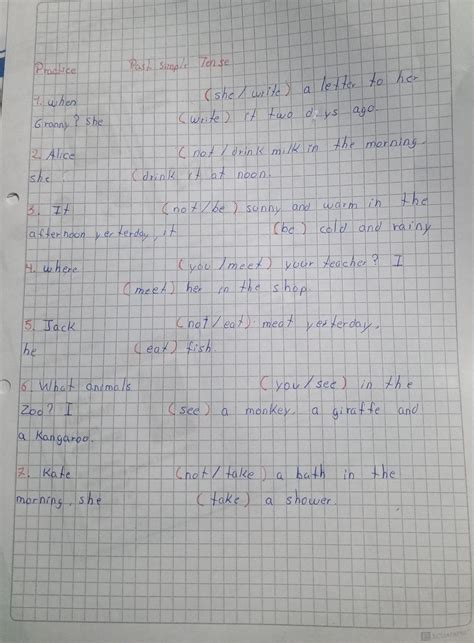 Practice Past simple Tense
1. when (she / write) a letter to her
Granny? She (write) it two days ago.
2. Alice (not / drink milk in the morning.
she (drink it at noon.
3. It (not/be) sunny and warm in the
afternoon yerterday, it (be) cold and rainy
4. where (you /meet) your teacher? I
(meet) her in the shop.
5. Jack (not/eat) meat yesterday,
he (eat) fish.
6. What animals (you/see) in the
Zoo? I (see) a monkey, a giraffe and
a Kangaroo.
7. Kate (not/take) a bath in the
morning, she (take) a shower.